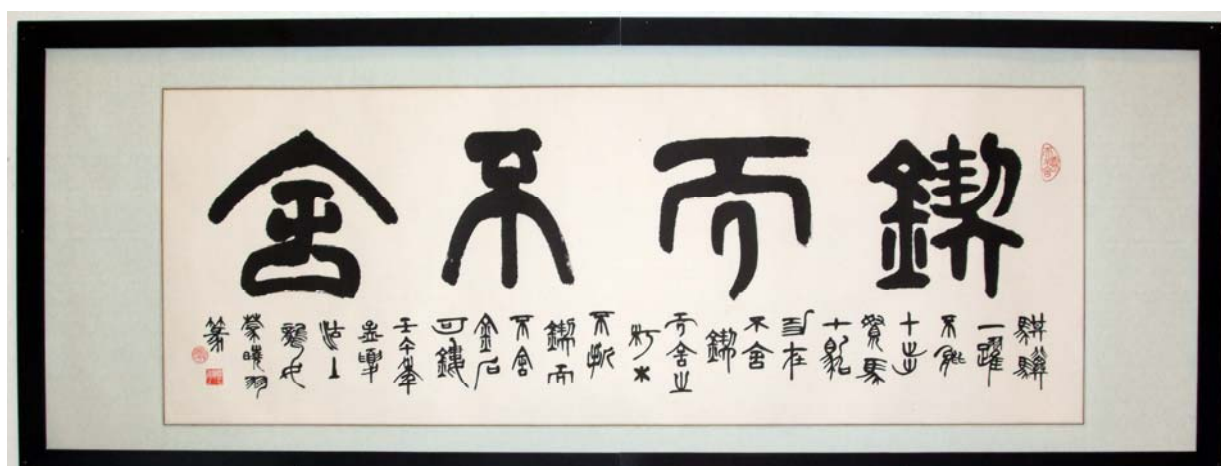 鍥而不舍
騏驥
一躍
不能
十步
駑馬
十駕
功在
不舍
鍥
而舍之
朽木
不折
鍥而
不舍
金石
可鏤
壬午年
孟夏
沽上
篆